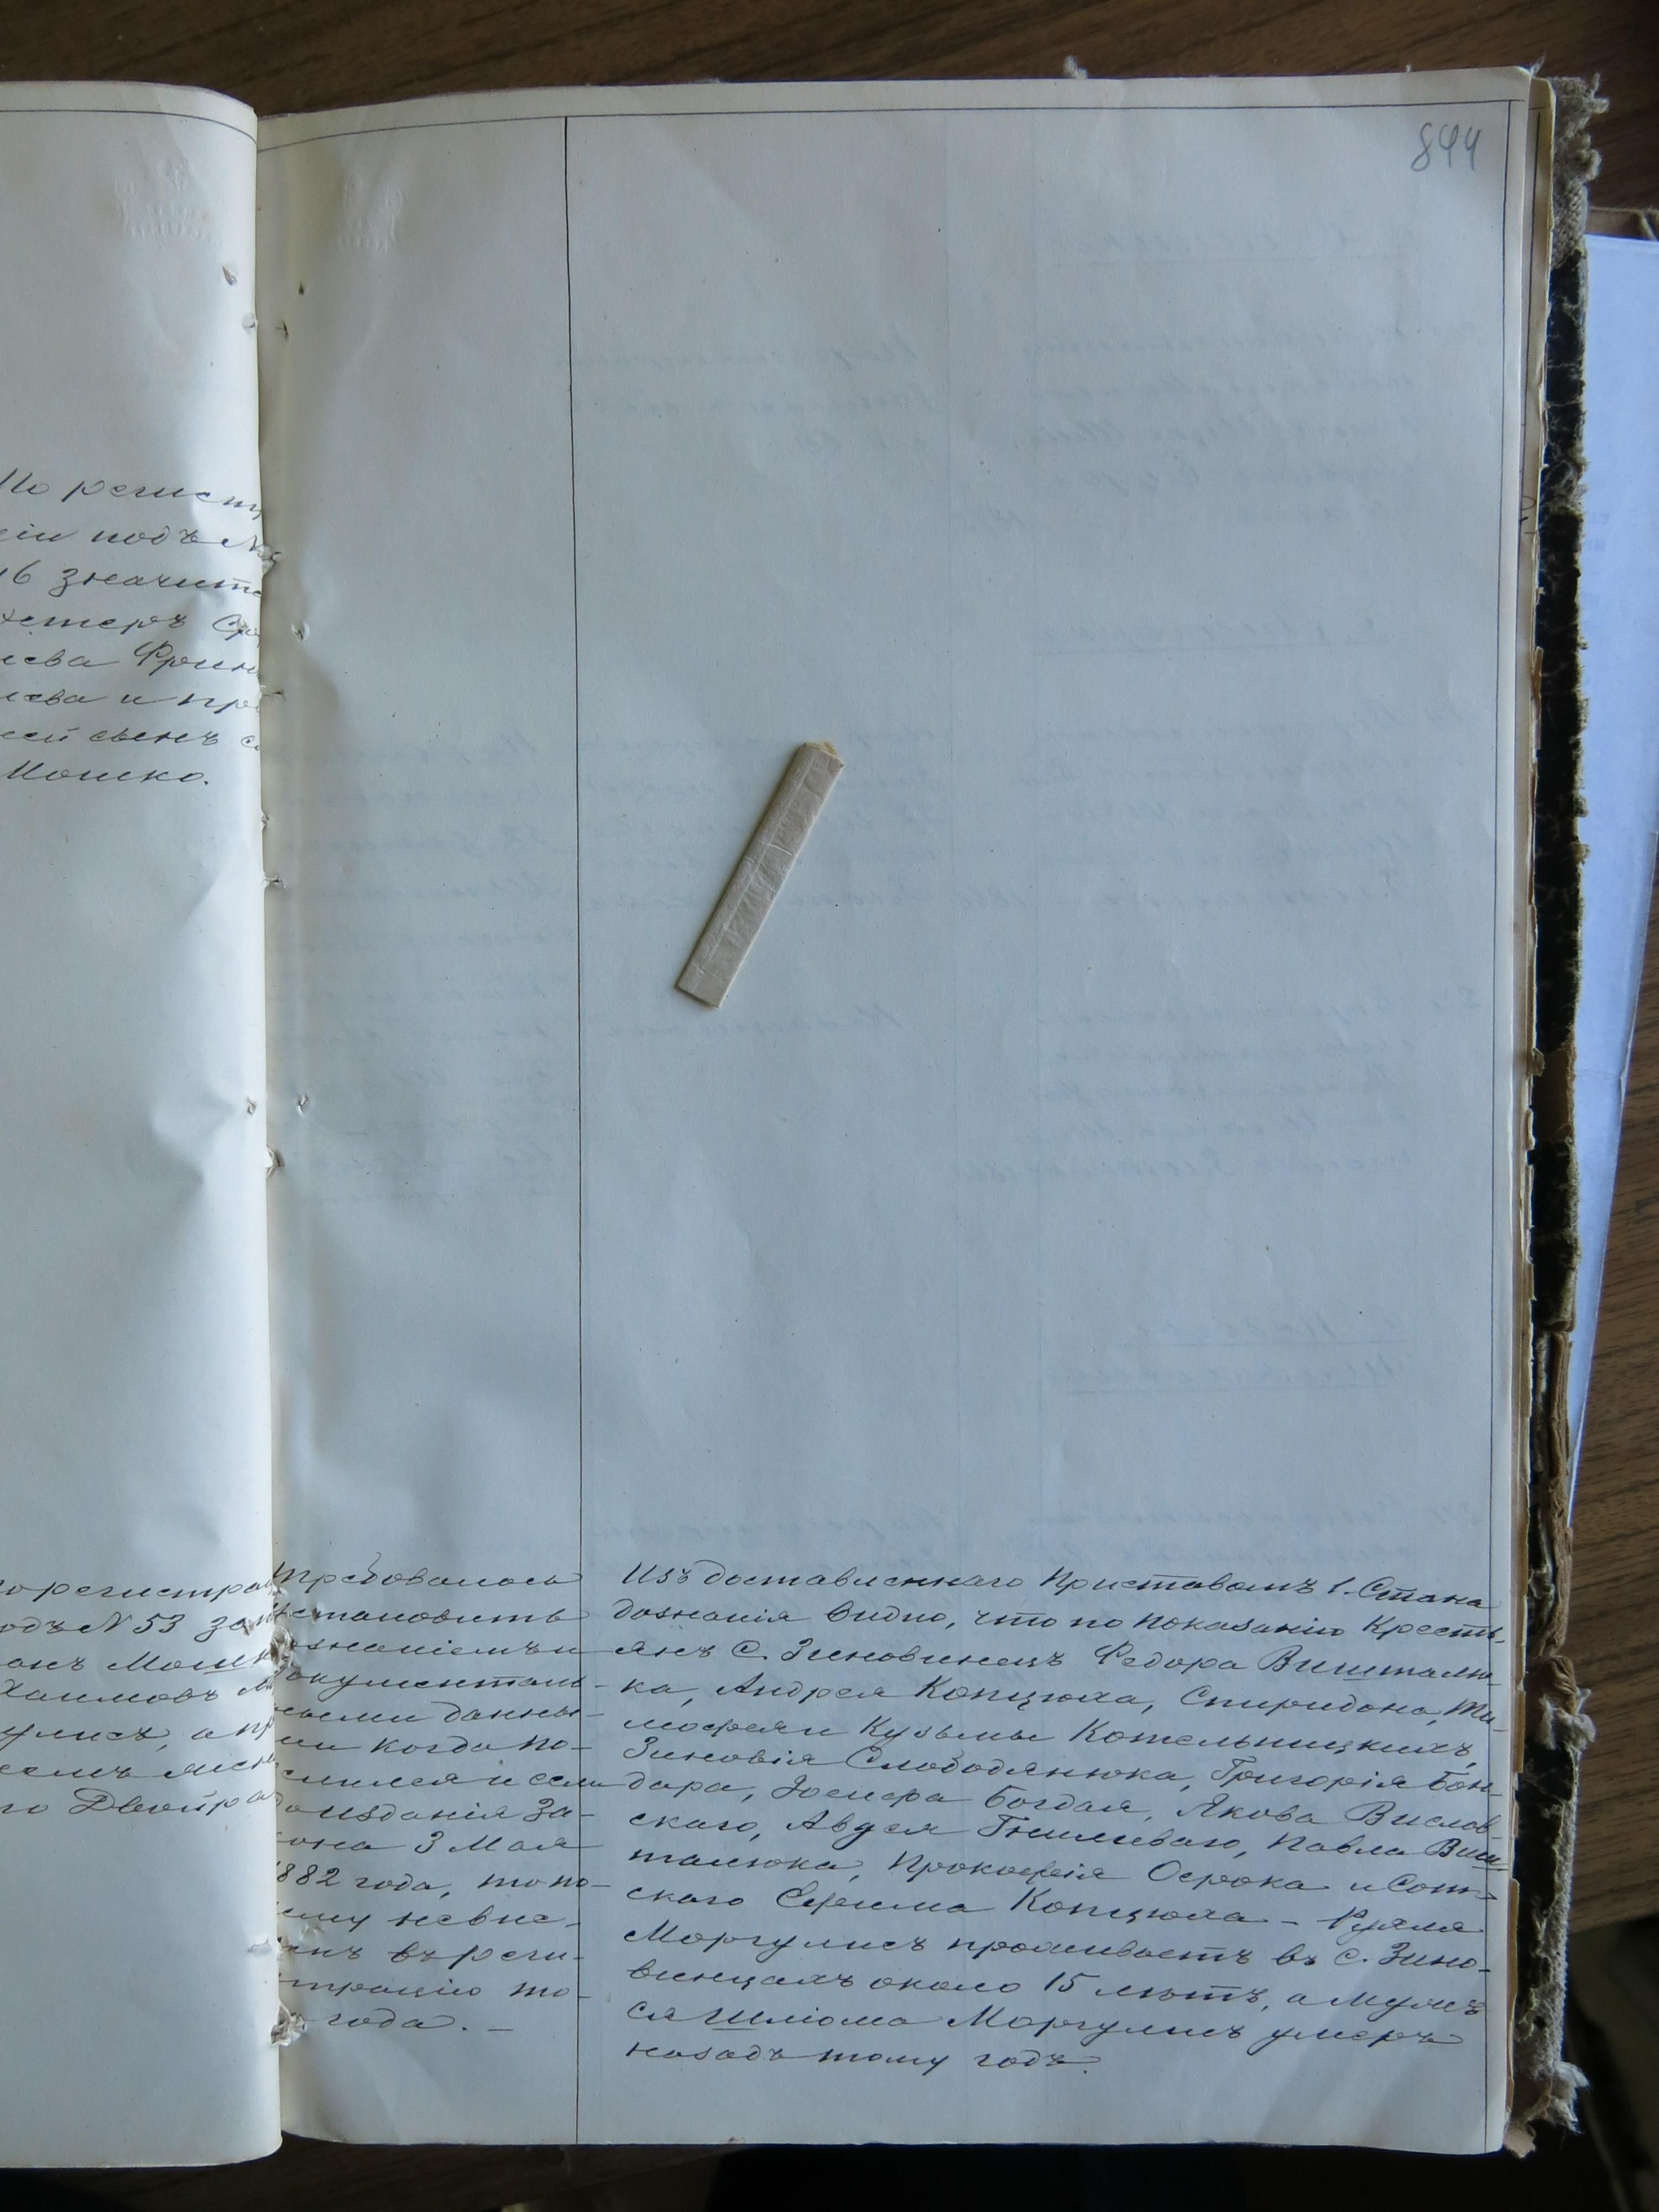 844
По регист
ціи подъ №
16 значитс
хтеръ
лева
лева и
сынъ
Мошко.
по регистра
одъ N 53
Мош
Хаимовъ
улисъ, а
го Двойра
Требовалось
установить
дознаніемъ и
документаль-
ными данны-
ми когда по-
селился и если
до изданія За-
кона 3 Мая
1882 года, то по-
чему не вне-
сенъ въ реги-
страцію то-
го года. —
Изъ доставленнаго Приставомъ 1. Стана
дознанія видно, что по показанію Кресть-
янъ С. Зиновинецъ Федора Вишталю-
ка, Андрея Копцюха, Спиридона, Ти-
мофея и Кузьмы Котельницкихъ,
Зиновія Слободянюка, Григорія Бон-
дара, Іосифа Богдая, Якова Вислов-
скаго, Авдея Гниливаго, Павла Виш-
талюка, Прокофія Осрока и Сот-
скаго Ефима Копцюха — Рухля
Моргулисъ проживаетъ въ с. Зино-
винцахъ около 15 лѣтъ, а мужъ
ея Шліома Моргулисъ умеръ
назадъ тому годъ.